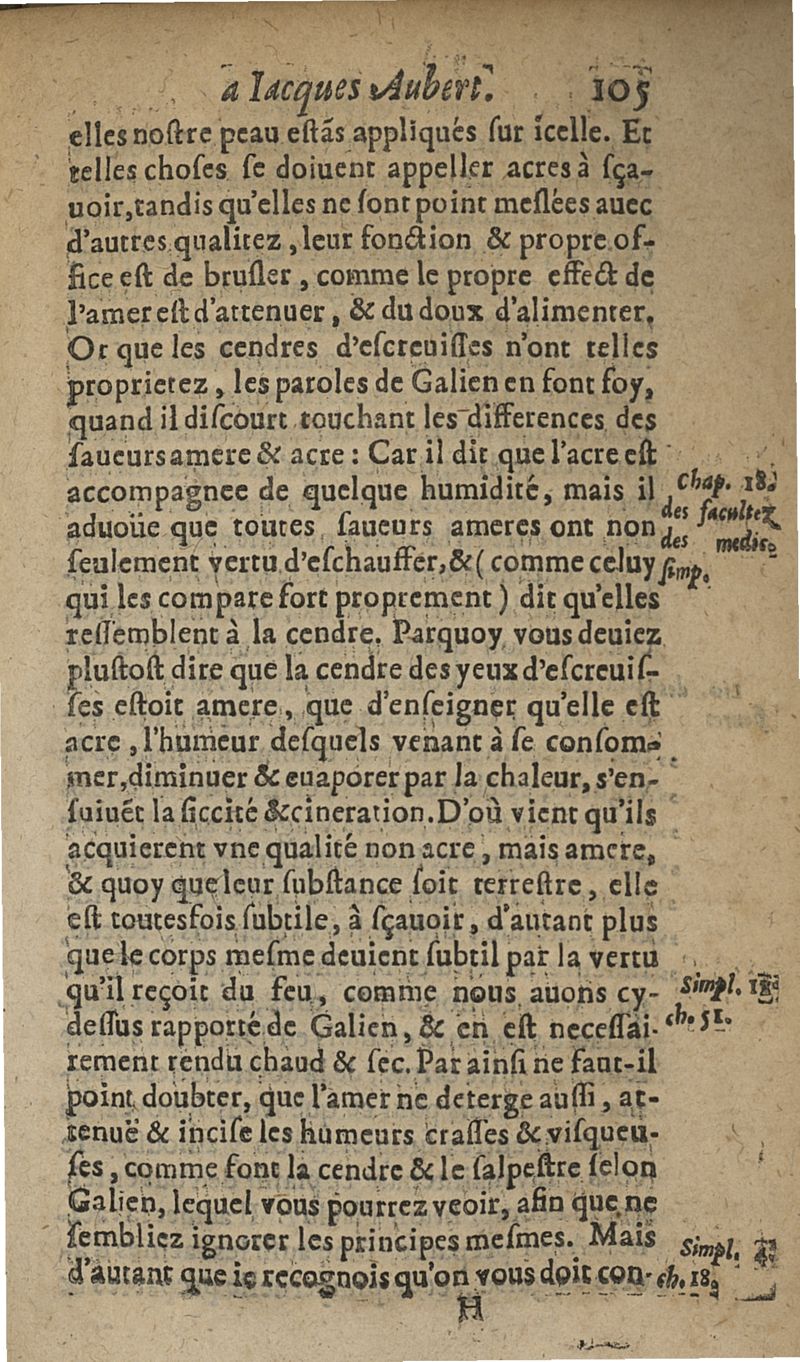 a Iacques Aubert. 105
elles noſtre peau eſtãs appliqués ſur icelle. Et
telles choſes ſe doiuent appeller acres à ſça-
uoir, tandis qu'elles ne ſont point meſlées auec
d'autres qualitez, leur fonction & propre of-
fice eſt de bruſler, comme le propre effect de
l'amer eſt d'attenuer, & du doux d'alimenter.
Or que les cendres d'eſcreuiſſes n'ont telles
proprietez, les paroles de Galien en font foy,
quand il diſcourt touchant les differences des
ſaueurs amere & acre : Car il dit que l'acre eſt
accompagnee de quelque humidité, mais il
aduoüe que toutes ſaueurs ameres ont non
ſeulement vertu d'eſchauffer, & ( comme celuy
qui les compare fort proprement ) dit qu'elles
reſſemblent à la cendre. Parquoy vous deuiez
pluſtoſt dire que la cendre des yeux d'eſcreuiſ-
ſes eſtoit amere, que d'enſeigner qu'elle eſt
acre, l'humeur deſquels venant à ſe conſom-
mer, diminuer & euaporer par la chaleur, s'en-
ſuiuẽt la ſiccité & cineration. D'où vient qu'ils
acquierent vne qualité non acre, mais amere,
& quoy que leur ſubſtance ſoit terreſtre, elle
eſt toutesfois ſubtile, à ſçauoir, d'autant plus
que le corps meſme deuient ſubtil par la vertu
qu'il reçoit du feu, comme nous auons cy-
deſſus rapporté de Galien, & en eſt neceſſai-
rement rendu chaud & ſec. Par ainſi ne faut-il
point doubter, que l'amer ne deterge auſſi, at-
tenuë & inciſe les humeurs craſſes & viſqueu-
ſes, comme font la cendre & le ſalpeſtre ſelon
Galien, lequel vous pourrez veoir, afin que ne
ſembliez ignorer les principes meſmes. Mais
d'autant que ie recognois qu'on vous doit con-
H
Chap. 18.
des facultez
des medic.
ſimp.
Simpl.
ch. 51.
Simpl.
ch. 18.